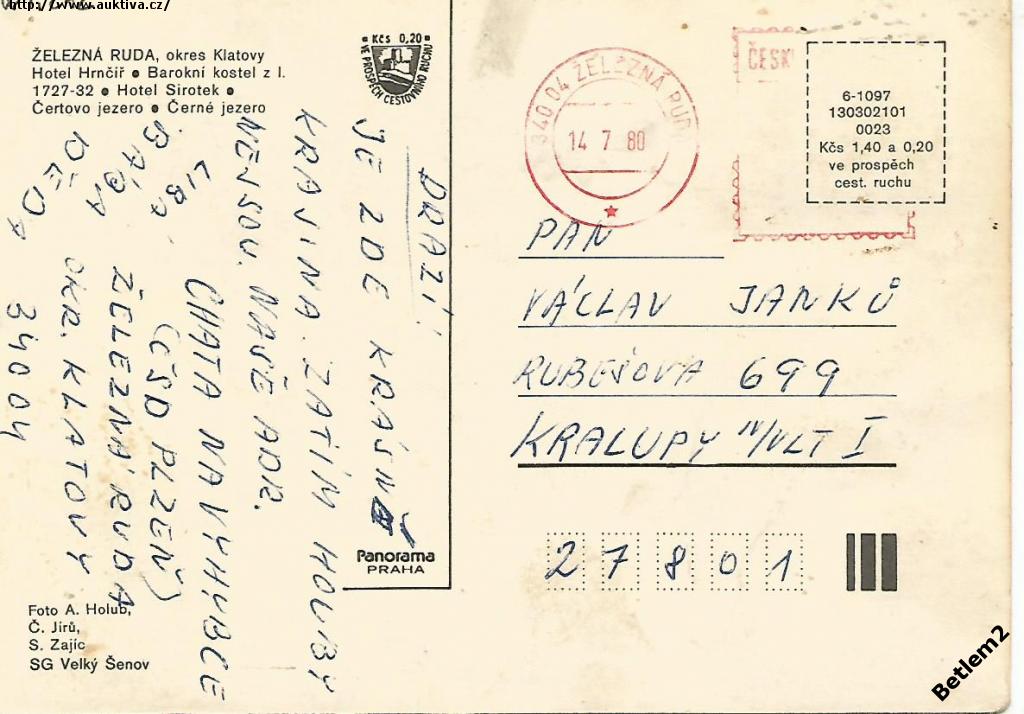 http://www.auktiva.cz/
ŽELEZNÁ RUDA, okres Klatovy
Hotel Hrnčíř ● Barokní kostel z l.
1727-32 ● Hotel Sirotek ●
Čertovo jezero ● Černé jezero
Kčs 0,20
VE PROSPĚCH CESTOVNÍHO RUCHU
DRAZÍ!
JE ZDE KRÁSNÁ
KRAJINA. ZATÍM HOUBY
NEJSOU. NAŠE ADR.
CHATA NA VÝHYBCE
(ČSD PLZEŇ)
ŽELEZNÁ RUDA
OKR. KLATOVY
340 04
LIBA
BÁBA
DĚDA
Panorama
PRAHA
Foto A. Holub,
Č. Jirů,
S. Zajíc
SG Velký Šenov
340 04 ŽELEZNÁ RUDA
14 7 80
ČESK
6-1097
130302101
0023
Kčs 1,40 a 0,20
ve prospěch
cest. ruchu
PAN
VÁCLAV JANKŮ
RUBEŠOVA 699
KRALUPY N/VLT I
27801
Betlem2